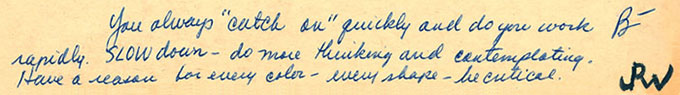 You always "catch on" quickly and do you work B-
rapidly. SLOW down - do more thinking and contemplating.
Have a reason for every color - every shape - be critical.
JRW